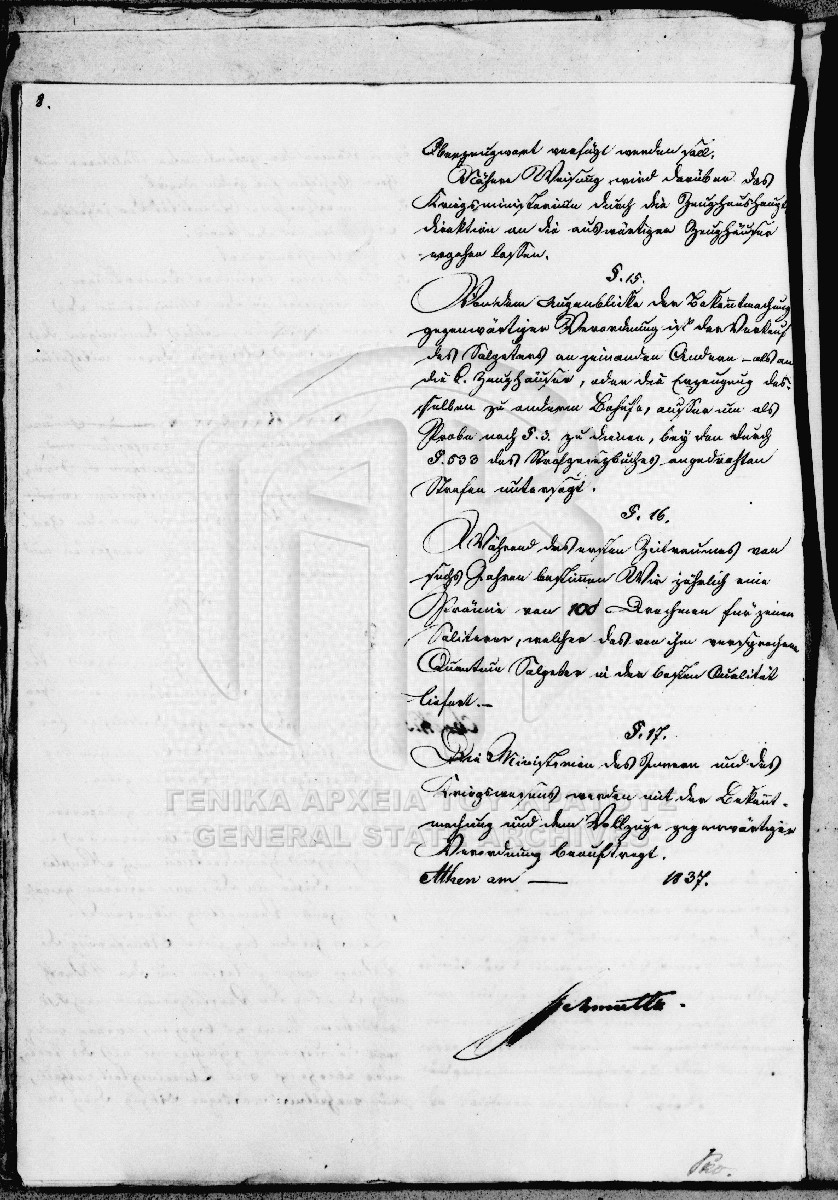 8.
Oberzeugwart verfügt werden soll.
Nähere Weisung wird darüber das
Kriegsministerium durch die Zeughaushaupt
direktion an die auswärtigen Zeughäuser
ergehen lassen.
§. 15.
Von dem Augenblicke der Bekañtmachung
gegenwärtiger Verordnung ist der Verkauf
des Salpeters an jemanden Andern – als an
die k. Zeughäuser, oder die Erzeugung des-
selben zu anderem Behufe, ausser um als
Probe nach §. 3. zu dienen, bey den durch
§. 533 des Strafgesetzbuches angedrohten
Strafen untersagt.
§. 16.
Während des ersten Zeitraumes von
sechs Jahren bestim̃en Wir jährlich eine
Prämie von 100 Drachmen für jenen
Saliterer, welcher das von ihm versprochene
Quantum Salpeter in der besten Qualität
liefert. –
§. 17.
Die Ministerien des Innern und des
Kriegswesens werden mit der Bekañt-
machung und dem Vollzuge gegenwärtiger
Verordnung beauftragt.
Athen am — 1837.
Schmaltz.
ΓΕΝΙΚΑ ΑΡΧΕΙΑ ΤΟΥ ΚΡΑΤΟΥΣ
GENERAL STATE ARCHIVES